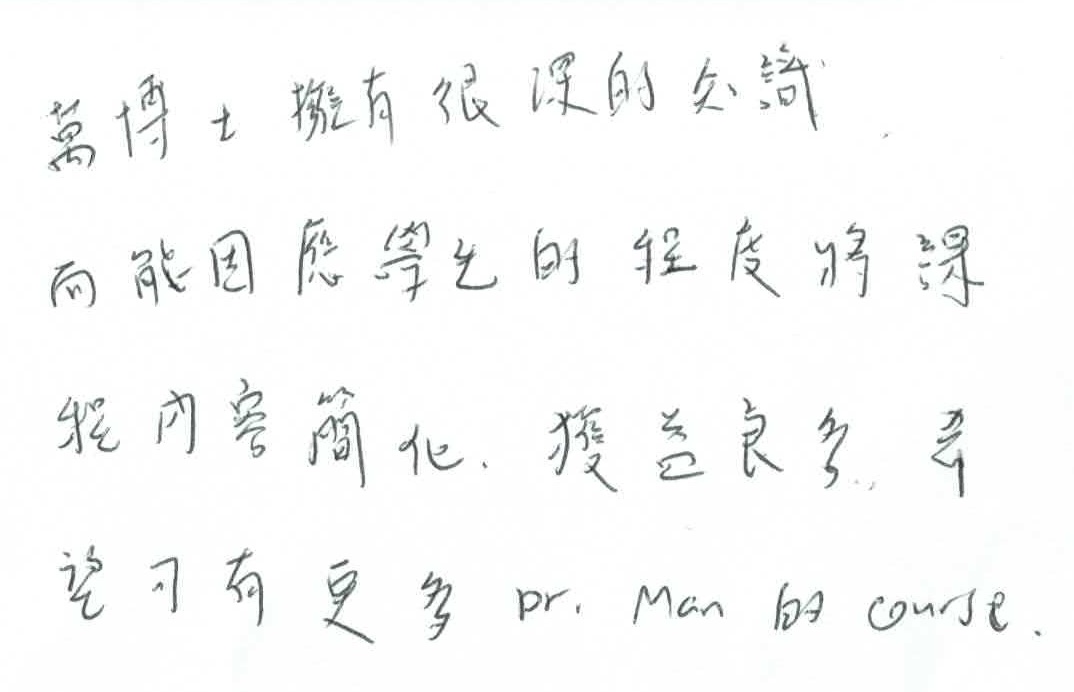 萬博士擁有很深的知識,
而能因應學生的程度將課
程內容簡化, 獲益良多, 希
望可有更多 Dr. Man 的 course.